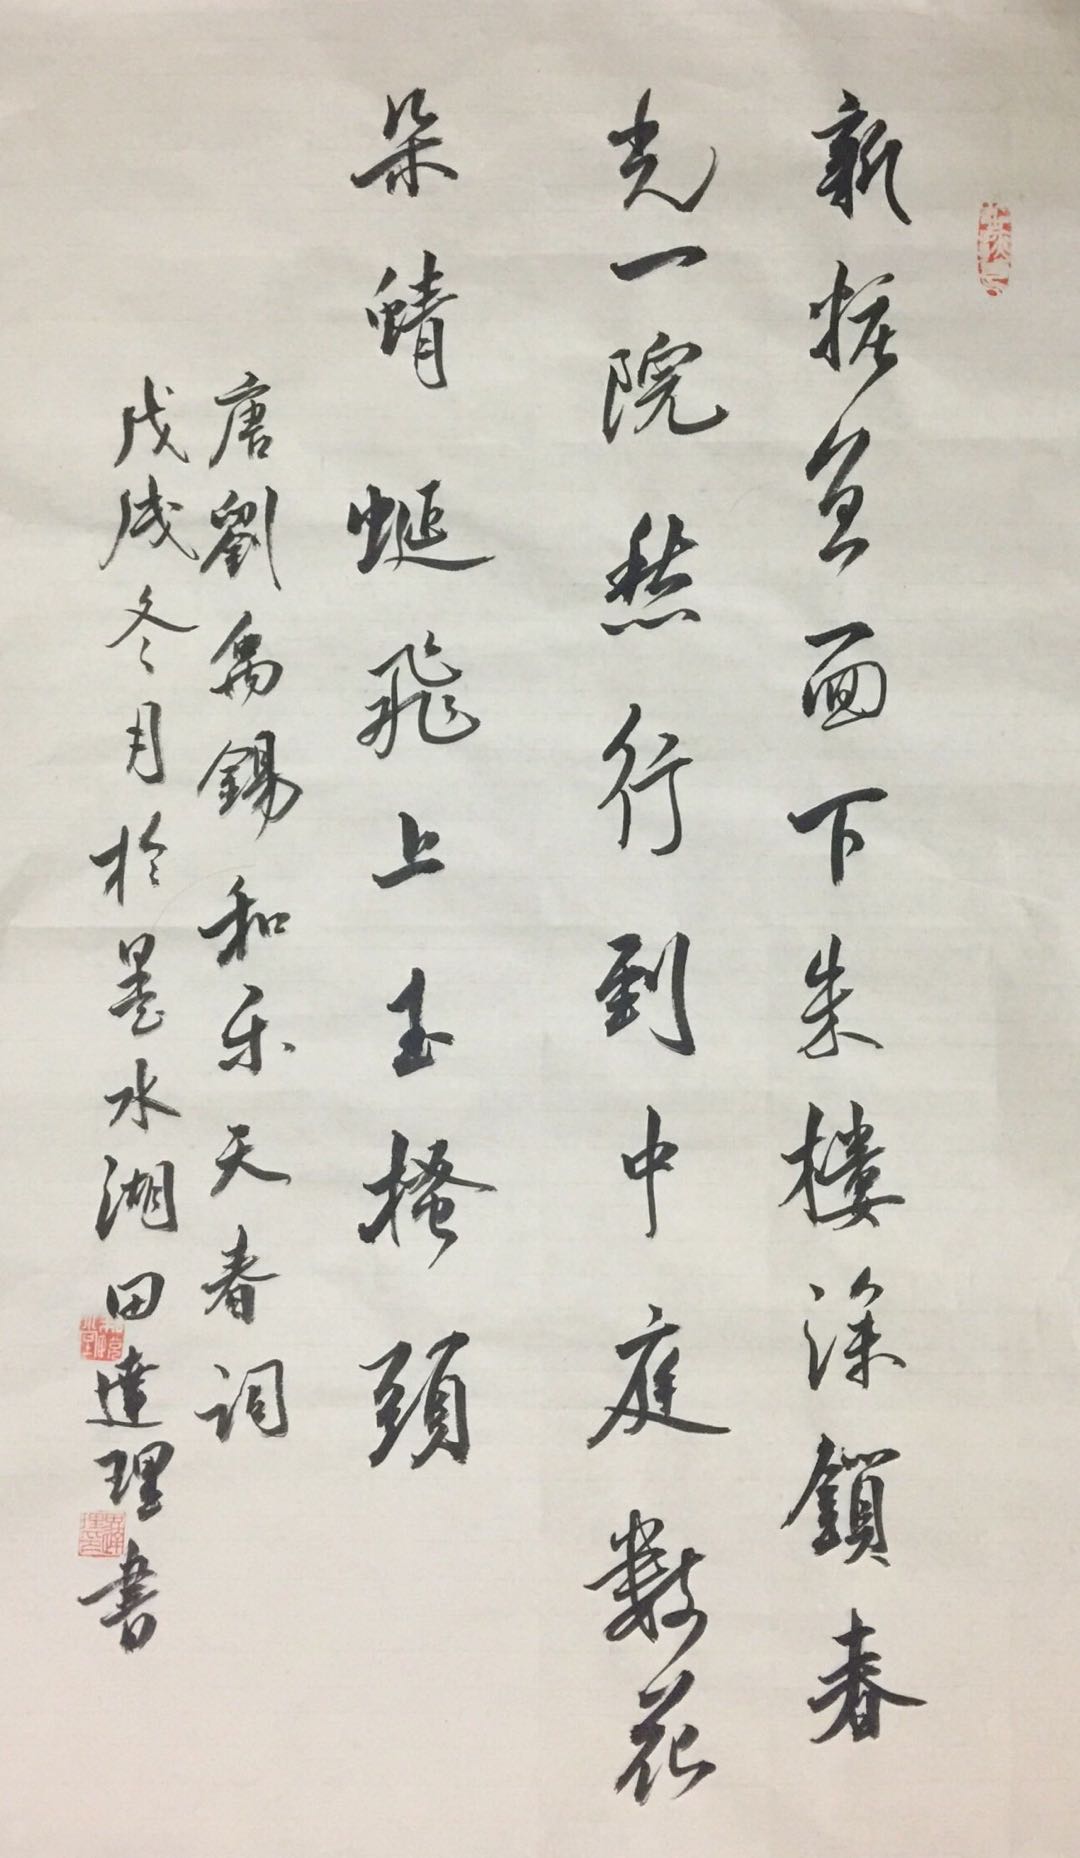 新粧宜面下朱樓深鎖春
光一院愁行到中庭數花
朵蜻蜓飛上玉搔頭
唐劉禹錫和乐天春詞
戊戌冬月於墨水湖田達理書